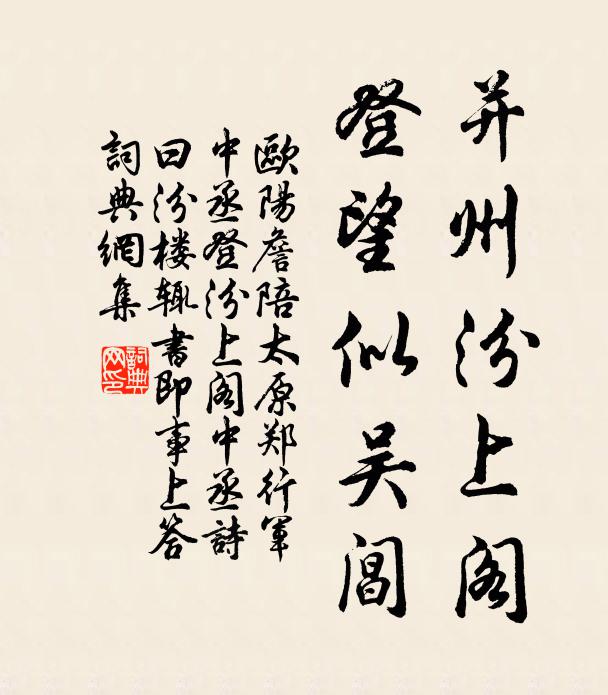 并州汾上阁
登望似吴阊
歐陽詹陪太原郑行軍
中丞登汾上阁中丞詩
曰汾楼辄書即事上答
詞典網集
詞典网印